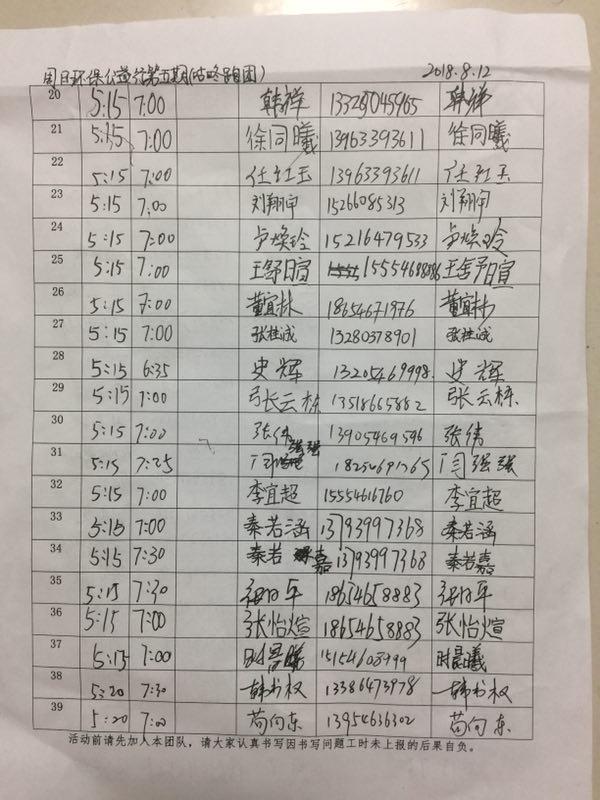 周日环保公益行第五期(咕咚跑团) 2018.8.12
20 5:15 7:00 韩祥 韩祥
21 5:15 7:00 徐同曦 13963393611 徐同曦
22 5:15 7:00 任红玉 13963393611 任红玉
23 5:15 7:00 刘翔宇 15266085313 刘翔宇
24 5:15 7:00 卢焕玲 15216479533 卢焕玲
25 5:15 7:00 王舒暄 王舒暄
26 5:15 7:00 董宜林 18654671976 董宜林
27 5:15 7:00 张桂诚 13280378901 张桂诚
28 5:15 6:35 史辉 13205469998 史辉
29 5:15 7:00 张云栋 13518665882 张云栋
30 5:15 7:00 张伟 13905469546 张伟
31 5:15 7:25 闫强强 闫强强
32 5:15 7:00 李宜超 15554616760 李宜超
33 5:15 7:00 秦若涵 13793997368 秦若涵
34 5:15 7:30 秦若嘉 13793997368 秦若嘉
35 5:15 7:30 18654658883
36 5:15 7:00 张怡煊 18654658883 张怡煊
37 5:15 7:00 时晨曦 时晨曦
38 5:20 7:30 韩书权 13386473978 韩书权
39 5:20 7:00 苟向东 13954636302 苟向东
活动前请先加入本团队，请大家认真书写因书写问题工时未上报的后果自负。